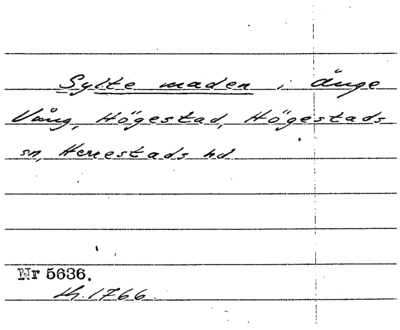 Sylte maden i Änge
Vång, Högestad, Högestads
sn, Herrestads hd
Nr 5636.
Lh. 1766